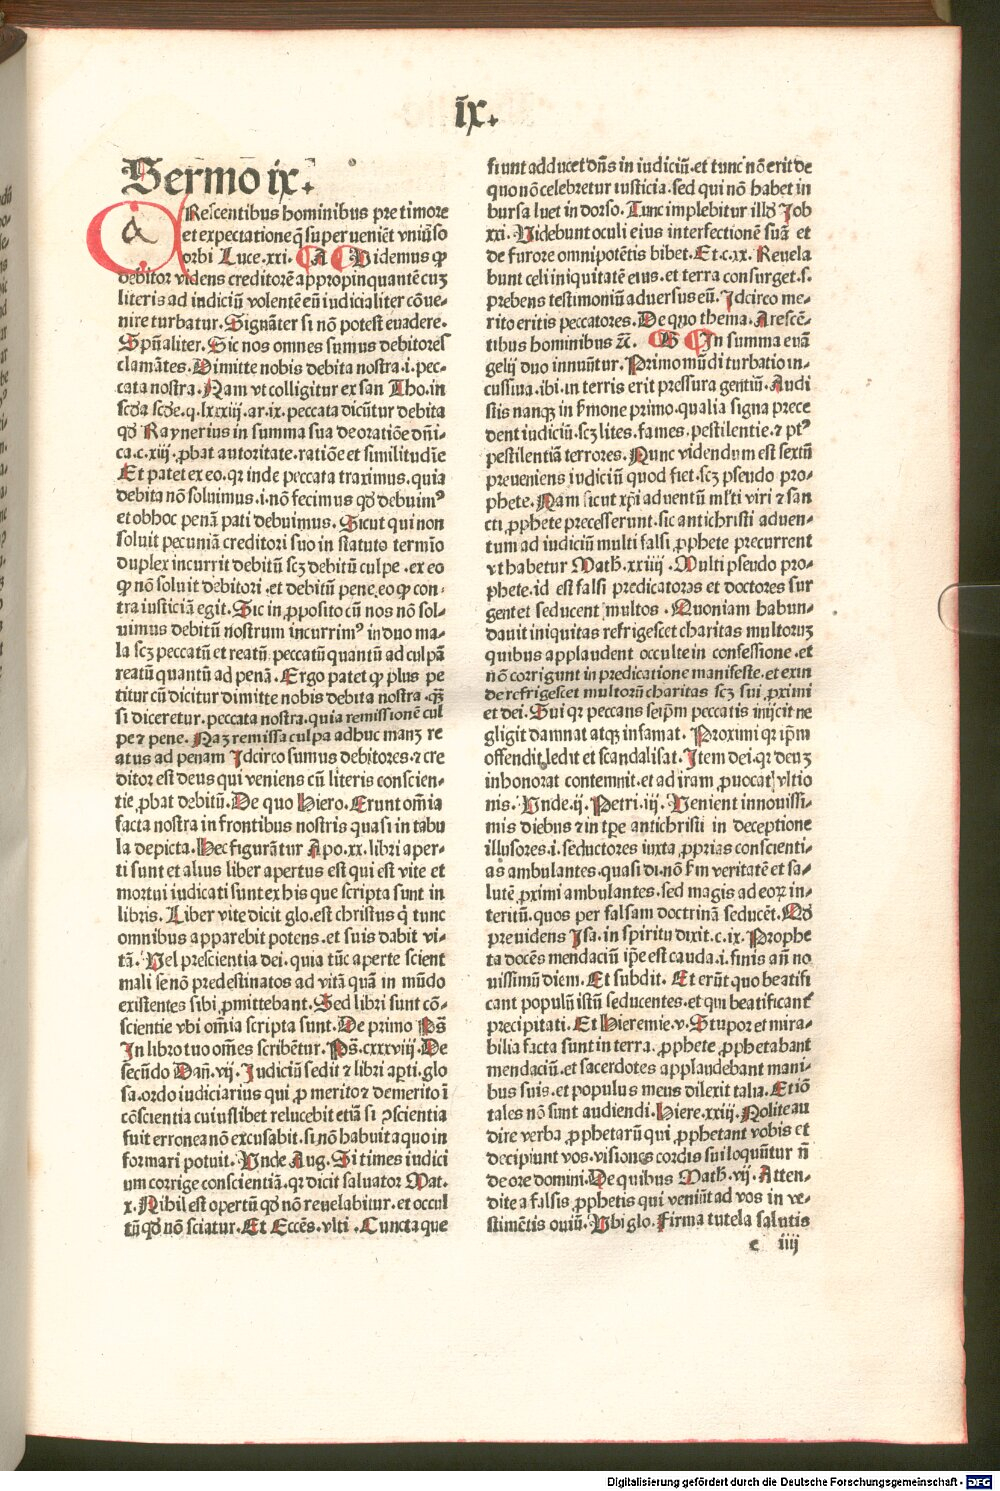 ix.
Sermo ix.
a Rescentibus hominibus pre timore
et expectatione q̄ superueniēt vniūso
orbi Luce.xxi. A Videmus ꝙ
debitor videns creditorē appropinquantē cuꝫ
literis ad indiciū volentē eū iudicialiter cōue-
nire turbatur. Signāter si nō potest euadere.
Spūaliter. Sic nos omnes sumus debitores
clamātes. Dimitte nobis debita nostra.i.pec-
cata nostra. Nam vt colligitur ex san Tho.in
scd̄a scd̄e.q.lxxxiij.ar.ix.peccata dicūtur debita
qd̄ Raynerius in summa sua de oratiōe dn̄i-
ca.c.xiij.ꝓbat autoritate.ratiōe et similitudīe
Et patet ex eo.qr inde peccata traximus.quia
debita nō soluimus.i.nō fecimus qd̄ debuimꝰ
et ob hoc penā pati debuimus. Sicut qui non
soluit pecuniā creditori suo in statuto termīo
duplex incurrit debitū scꝫ debitū culpe.ex eo
ꝙ nō soluit debitori.et debitū pene.eo ꝙ con-
tra iusticiā egit. Sic in ꝓposito cū nos nō sol-
uimus debitū nostrum incurrimꝰ in duo ma-
la scꝫ peccatū et reatū.peccatū quantū ad culpā
reatū quantū ad penā. Ergo patet ꝙ plus pe
titur cū dicitur dimitte nobis debita nostra.qꝫ̄
si diceretur.peccata nostra.quia remissionē cul
pe ⁊ pene. Naꝫ remissa culpa adhuc manꝫ re
atus ad penam Idcirco sumus debitores.⁊ cre
ditor est deus qui veniens cū literis conscien-
tie ꝓbat debitū. De quo Hiero. Erunt om̄ia
facta nostra in frontibus nostris quasi in tabu
la depicta. Hec figurātur Apo.xx.libri aper-
ti sunt et alius liber apertus est qui est vite et
mortui iudicati sunt ex his que scripta sunt in
libris. Liber vite dicit glo.est christus q̇ tunc
omnibus apparebit potens.et suis dabit vi-
tā. Vel prescientia dei.quia tūc aperte scient
mali se nō predestinatos ad vitā quā in mūdo
existentes sibi ꝓmittebant. Sed libri sunt cō-
scientie vbi om̄ia scripta sunt. De primo Ps̄
In libro tuo om̄es scribētur. Ps̄.cxxxviij. De
secūdo Dan̄.vij. Judiciū sedit ⁊ libri aꝑti.glo
sa.ordo iudiciarius qui ꝓ merito ⁊ demerito ī
cōscientia cuiuslibet relucebit etiā si ↄscientia
fuit erronea nō excusabit.si nō habuit a quo in
formari potuit. Vnde Aug. Si times iudici
um corrige conscientiā.qr dicit saluator Mat.
x. Nihil est opertū qd̄ nō reuelabitur.et occul
tū qd̄ nō sciatur. Et Eccēs.vlti. Cuncta que
fiunt adducet dn̄s in iudiciū.et tunc nō erit de
quo nō celebretur iusticia.sed qui nō habet in
bursa luet in dorso. Tunc implebitur illd̄ Job
xxi. Videbunt oculi eius interfectionē suā et
de furore omnipotētis bibet. Et.c.xx. Reuela
bunt celi iniquitatē eius.et terra consurget.s.
prebens testimoniū aduersus eū. Idcirco me-
rito eritis peccatores. De quo thema. Arescē-
tibus hominibus ⁊c̄. B In summa euā
gelij duo innuūtur. Primo mūdi turbatio in-
cussiua.ibi.in terris erit pressura gentiū. Audi
stis nanqꝫ in s̄mone primo.qualia signa prece
dent iudiciū.scꝫ lites.fames.pestilentie.⁊ ptꝰ
pestilentiā terrores. Nunc videndum est sextū
preueniens iudiciū quod fiet.scꝫ pseudo pro-
phete. Nam sicut xp̄i aduentū ml̄ti viri ⁊ san
cti ꝓphete precesserunt.sic antichristi aduen-
tum ad iudiciū multi falsi ꝓphete precurrent
vt habetur Math.xxiiij. Multi pseudo pro-
phete.id est falsi predicatores et doctores sur
gent et seducent multos. Quoniam habun-
dauit iniquitas refrigescet charitas multoruꝫ
quibus applaudent occulte in confessione.et
nō corrigunt in predicatione manifeste.et exin
de refrigescet multorū charitas scꝫ sui ꝓximi
et dei. Sui qr peccans seip̄m peccatis inijcit ne
gligit damnat atqꝫ infamat. Proximi qr ip̄m
offendit ledit et scandalisat. Item dei.qr deuꝫ
inhonorat contemnit.et ad iram ꝓuocat vltio
nis. Vnde.ij. Petri.iij. Venient in nouissi-
mis diebus ⁊ in tp̄e antichristi in deceptione
illusores.i.seductores iuxta ꝓprias conscienti-
as ambulantes.quasi di.nō s̄m veritatē et sa-
lutē ꝓximi ambulantes.sed magis ad eoꝝ in-
teritū.quos per falsam doctrinā seducēt. Qd̄
preuidens Isa.in spiritu dixit.c.ix. Prophe
ta docēs mendaciū ip̄e est cauda.i.finis an̄ no
uissimū diem. Et subdit. Et erūt quo beatifi
cant populū istū seducentes.et qui beatificant̄
precipitati. Et Hieremie.v. Stupor et mira-
bilia facta sunt in terra.ꝓphete ꝓphetabant
mendaciū.et sacerdotes applaudebant mani-
bus suis.et populus meus dilexit talia. Et iō
tales nō sunt audiendi. Hiere.xxiij. Nolite au
dire verba ꝓphetarū qui ꝓphetant vobis et
decipiunt vos.visiones cordis sui loquūtur n̄
de ore domini. De quibus Math.vij. Atten-
dite a falsis ꝓphetis qui veniūt ad vos in ve-
stimētis ouiū. Vbi glo. Firma tutela salutis
e iiij
Digitalisierung gefördert durch die Deutsche Forschungsgemeinschaft - DFG